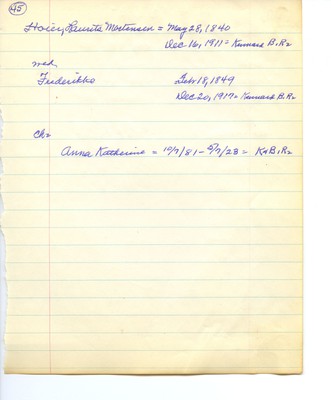 45
Hoier, Laurits Mortensen = May 28, 1840
Dec 16, 1911 = Kennard B.R=
wed.
Frederikke Feb 18, 1849
Dec 20, 1917= Kennard B.R=
Ch=
Anna Katherine = 10/7/81 - 5/7/28 = K B.R=